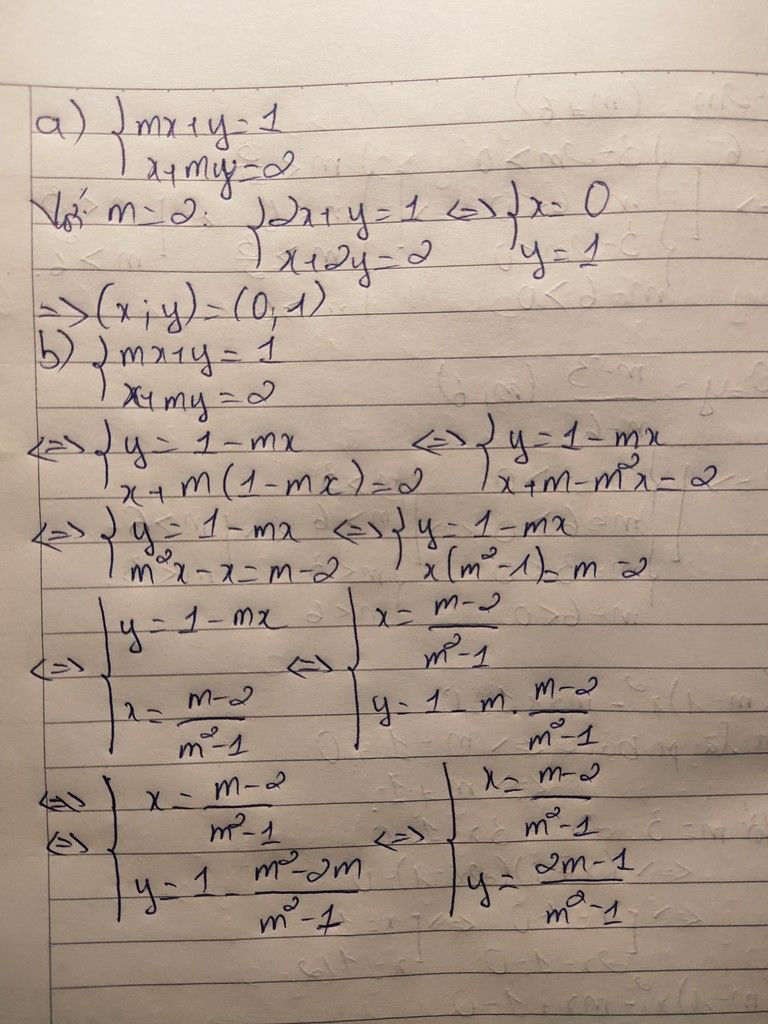 a) { mx+y=1
x+my=2
Với m=2: { 2x+y=1 <=> { x=0
x+2y=2 y=1
=> (x;y)=(0,1)
b) { mx+y=1
x+my=2
<=> { y=1-mx <=> { y=1-mx
x+m(1-mx)=2 x+m-m²x=2
<=> { y=1-mx <=> { y=1-mx
m²x-x=m-2 x(m²-1)=m-2
<=> { y=1-mx <=> { x=(m-2)/(m²-1)
x=(m-2)/(m²-1) y=1-m.(m-2)/(m²-1)
<=>
<=> { x=(m-2)/(m²-1) <=> { x=(m-2)/(m²-1)
y=1-(m²-2m)/(m²-1) y=(2m-1)/(m²-1)